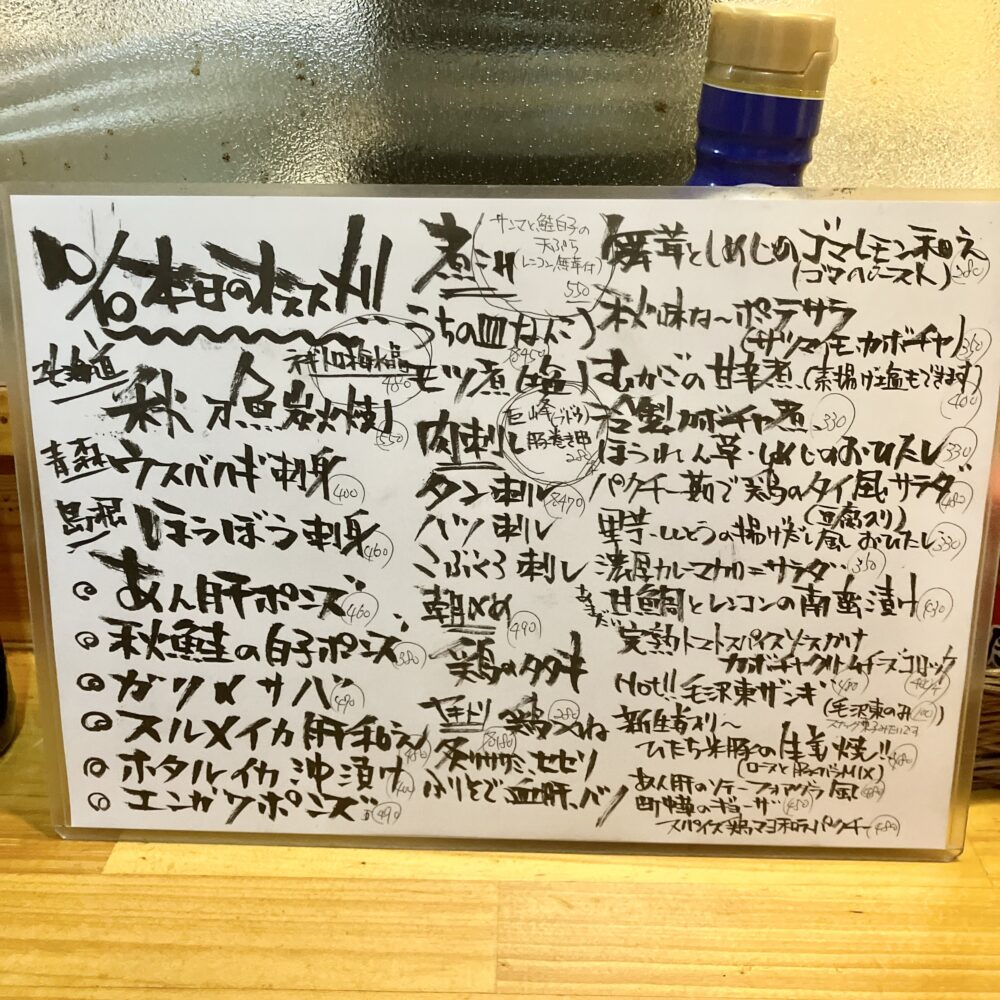 10/10本日のオススメ!!
北海道
480
秋刀魚炭火焼
550
青森
ウスバハギ刺身 400
島根
ほうぼう刺身 460
あん肝ポンズ 460
秋鮭の白子ポンズ 380
ガリ〆サバ 490
スルメイカ肝和え
ホタルイカ沖漬け
エンガワポンズ 490
煮こみ
サンマと鮭白子の
天ぷら
(レンコン、舞茸付)
550
うちの皿なんこつ
モツ煮(塩)
肉刺し
巨峰(ブドウ)
豚巻き串
タン刺し
ハツ刺し
こぶくろ刺し
朝〆め
490
鶏のタタキ
ヤキトリ 鶏つくね 280
炙りササミ、セセリ
ぶりとで血肝、ハツ
舞茸としめじのゴマレモン和え
380
秋味な〜ポテサラ
(サツマイモ、カボチャ) 350
むかごの甘辛煮(素揚げ塩もできます)
400
冷製カボチャ煮 330
ほうれん草・しめじのおひたし 330
パクチー、茹で鶏のタイ風サラダ
(豆腐入り) 480
里芋・ししとうの揚げだし風おひたし 330
濃厚カレーマカロニサラダ 350
甘鯛とレンコンの南蛮漬け
完熟トマトスパイスソースがけ
カボチャクリームチーズコロッケ
Hot!! 毛沢東ザンギ (毛沢東のみ 100)
スナック菓子みたいです
新生姜入り〜
ひたち米豚の生姜焼!!
(ロースと豚バラMIX)
あん肝のソテーフォアグラ風
町中華のギョーザ 450
スパイス鶏マヨ和えパクチー 480